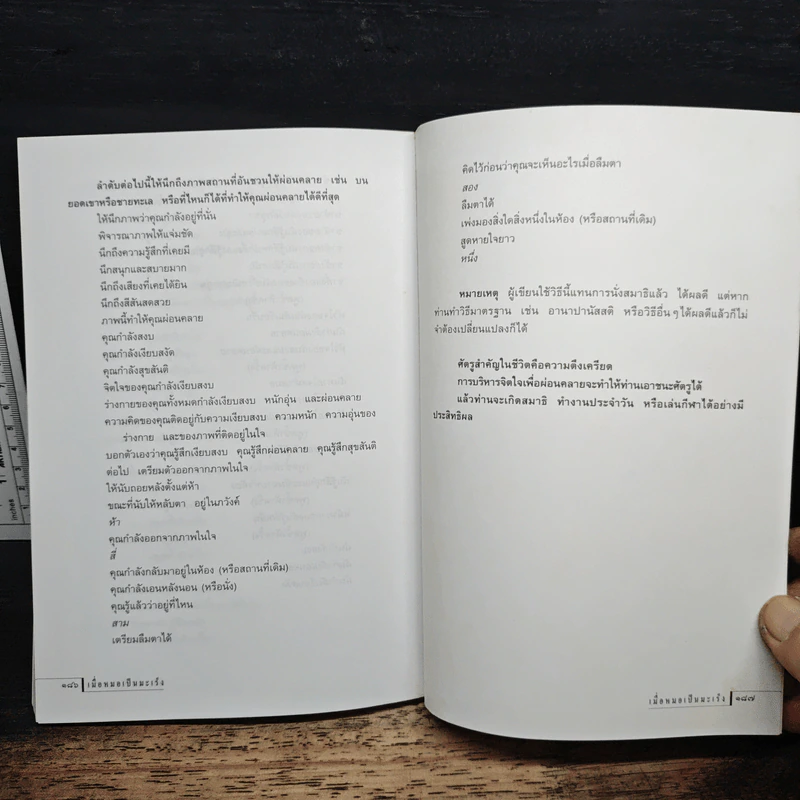 ลำดับต่อไปนี้ให้นึกถึงภาพสถานที่อันชวนให้ผ่อนคลาย เช่น บน
ยอดเขาหรือชายทะเล หรือที่ไหนก็ได้ที่ทำให้คุณผ่อนคลายได้ดีที่สุด
ให้นึกภาพว่าคุณกำลังอยู่ที่นั่น
พิจารณาภาพให้แจ่มชัด
นึกถึงความรู้สึกที่เคยมี
นึกสนุกและสบายมาก
นึกถึงเสียงที่เคยได้ยิน
นึกถึงสีสันสดสวย
ภาพนี้ทำให้คุณผ่อนคลาย
คุณกำลังสงบ
คุณกำลังเงียบสงัด
คุณกำลังสุขสันติ
จิตใจของคุณกำลังเงียบสงบ
ร่างกายของคุณทั้งหมดกำลังเงียบสงบ หนักอุ่น และผ่อนคลาย
ความคิดของคุณติดอยู่กับความเงียบสงบ ความหนัก ความอุ่นของ
ร่างกาย และของภาพที่ติดอยู่ในใจ
บอกตัวเองว่าคุณรู้สึกเงียบสงบ คุณรู้สึกผ่อนคลาย คุณรู้สึกสุขสันติ
ต่อไป เตรียมตัวออกจากภาพในใจ
ให้นับถอยหลังตั้งแต่ห้า
ขณะที่นับให้หลับตา อยู่ในภวังค์
ห้า
คุณกำลังออกจากภาพในใจ
สี่
คุณกำลังกลับมาอยู่ในห้อง (หรือสถานที่เดิม)
คุณกำลังเอนหลังนอน (หรือนั่ง)
คุณรู้แล้วว่าอยู่ที่ไหน
สาม
เตรียมลืมตาได้
๑๘๖ เมื่อหมอเป็นมะเร็ง
คิดไว้ก่อนว่าคุณจะเห็นอะไรเมื่อลืมตา
สอง
ลืมตาได้
เพ่งมองสิ่งใดสิ่งหนึ่งในห้อง (หรือสถานที่เดิม)
สูดหายใจยาว
หนึ่ง
หมายเหตุ ผู้เขียนใช้วิธีนี้แทนการนั่งสมาธิแล้ว ได้ผลดี แต่หาก
ท่านทำวิธีมาตรฐาน เช่น อานาปานัสสติ หรือวิธีอื่นๆ ได้ผลดีแล้วก็ไม่
จำต้องเปลี่ยนแปลงก็ได้
ศัตรูสำคัญในชีวิตคือความตึงเครียด
การบริหารจิตใจเพื่อผ่อนคลายจะทำให้ท่านเอาชนะศัตรูได้
แล้วท่านจะเกิดสมาธิ ทำงานประจำวัน หรือเล่นกีฬาได้อย่างมี
ประสิทธิผล
เมื่อหมอเป็นมะเร็ง ๑๘๗
inches